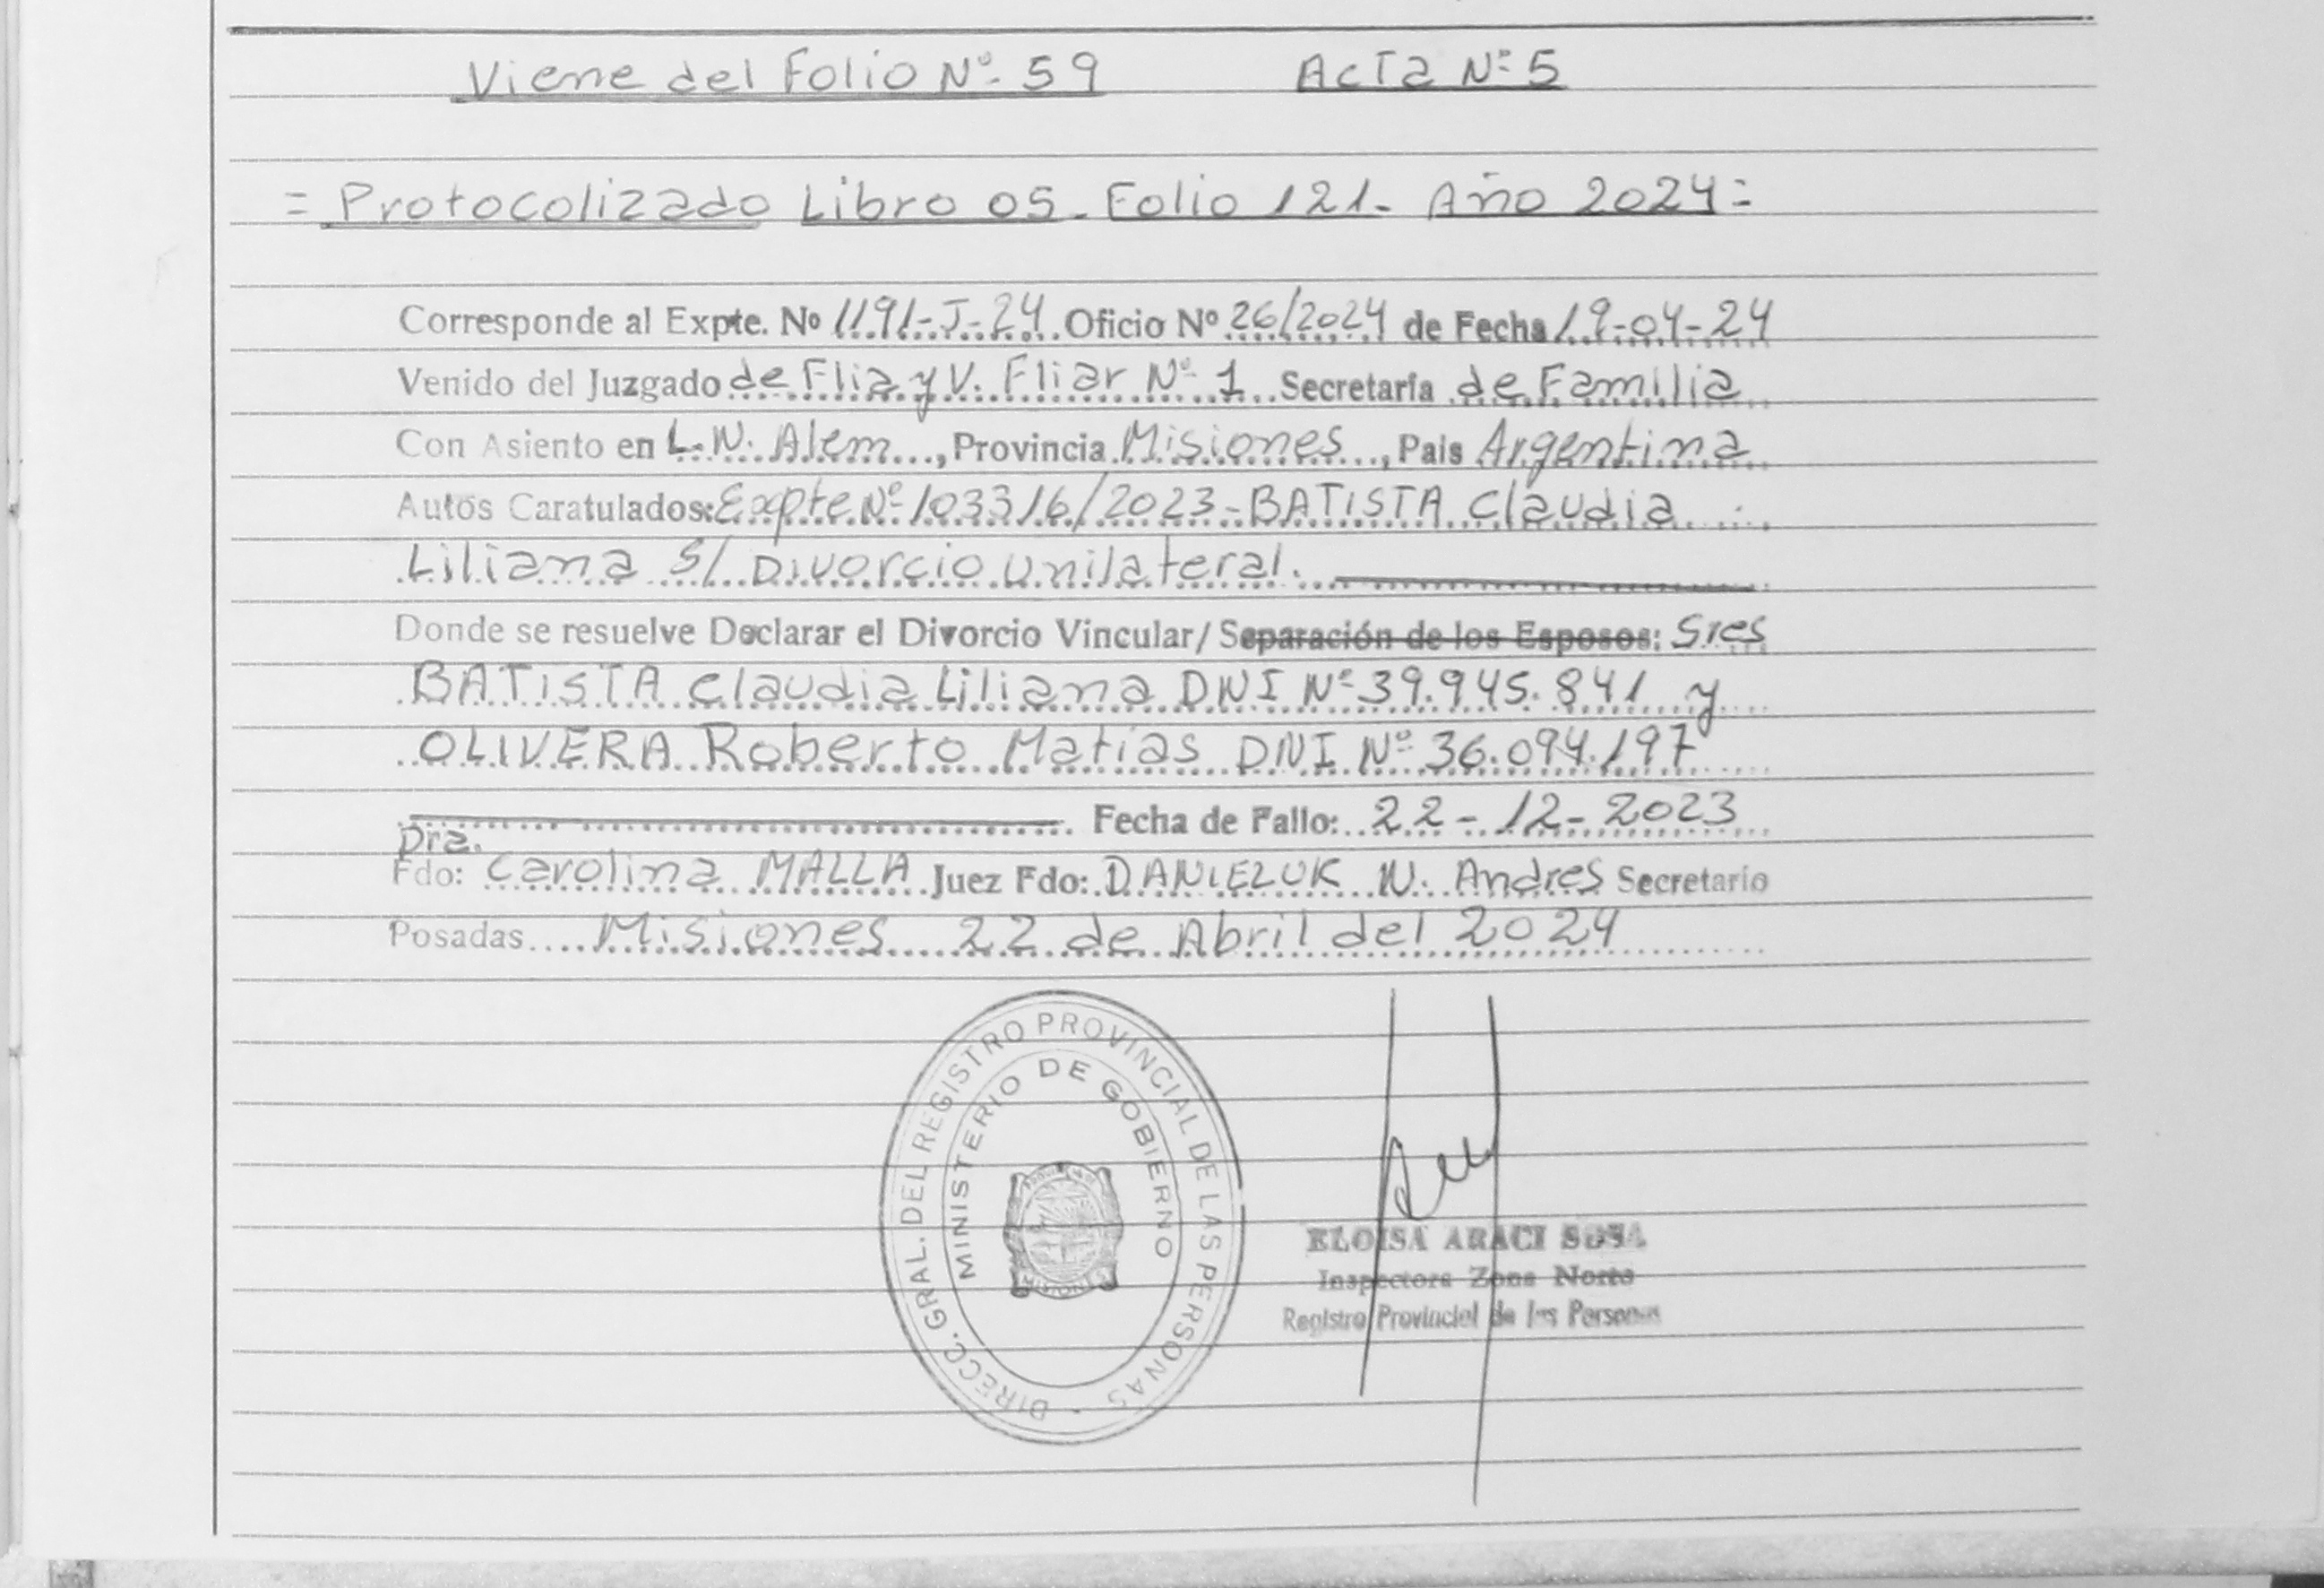 Viene del Folio Nº 59 Acta Nº 5
= Protocolizado Libro 05 - Folio 121 - Año 2024 =
Corresponde al Expte. Nº 1191-J-24 Oficio Nº 26/2024 de Fecha 19-04-24
Venido del Juzgado de Flia y V. Fliar Nº 1 Secretaría de Familia
Con Asiento en L. N. Alem, Provincia Misiones, Pais Argentina
Autos Caratulados: Expte Nº 103316/2023 - BATISTA Claudia
Liliana S/ Divorcio Unilateral.
Donde se resuelve Declarar el Divorcio Vincular/ Separación de los Esposos: Sres
BATISTA Claudia Liliana DNI Nº 39.945.841 y
OLIVERA Roberto Matias DNI Nº 36.094.197
Fecha de Fallo: 22-12-2023
Dra.
Fdo: Carolina MALLA Juez Fdo: DANIELUK N. Andres Secretario
Posadas Misiones 22 de Abril del 2024
DIRECC. GRAL. DEL REGISTRO PROVINCIAL DE LAS PERSONAS -
MINISTERIO DE GOBIERNO
MISIONES
ELOISA ARACI SOSA
Inspectora Zona Norte
Registro Provincial de las Personas